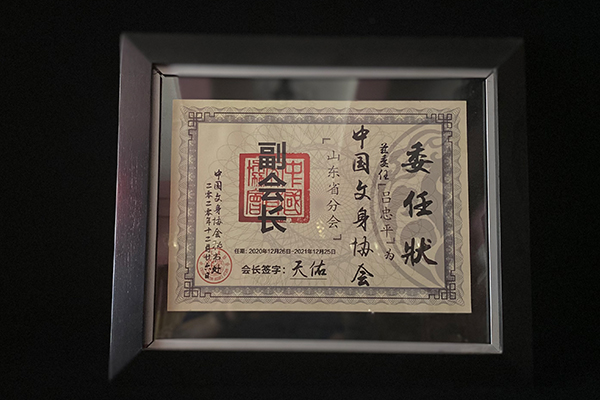 委任狀
兹委任「吕忠平」为
中国文身协会
「山东省分会」
副会长
任期：2020年12月26日--2021年12月25日
会长签字：天佑
中国文身协会秘书处
二零二零年十二月廿六日